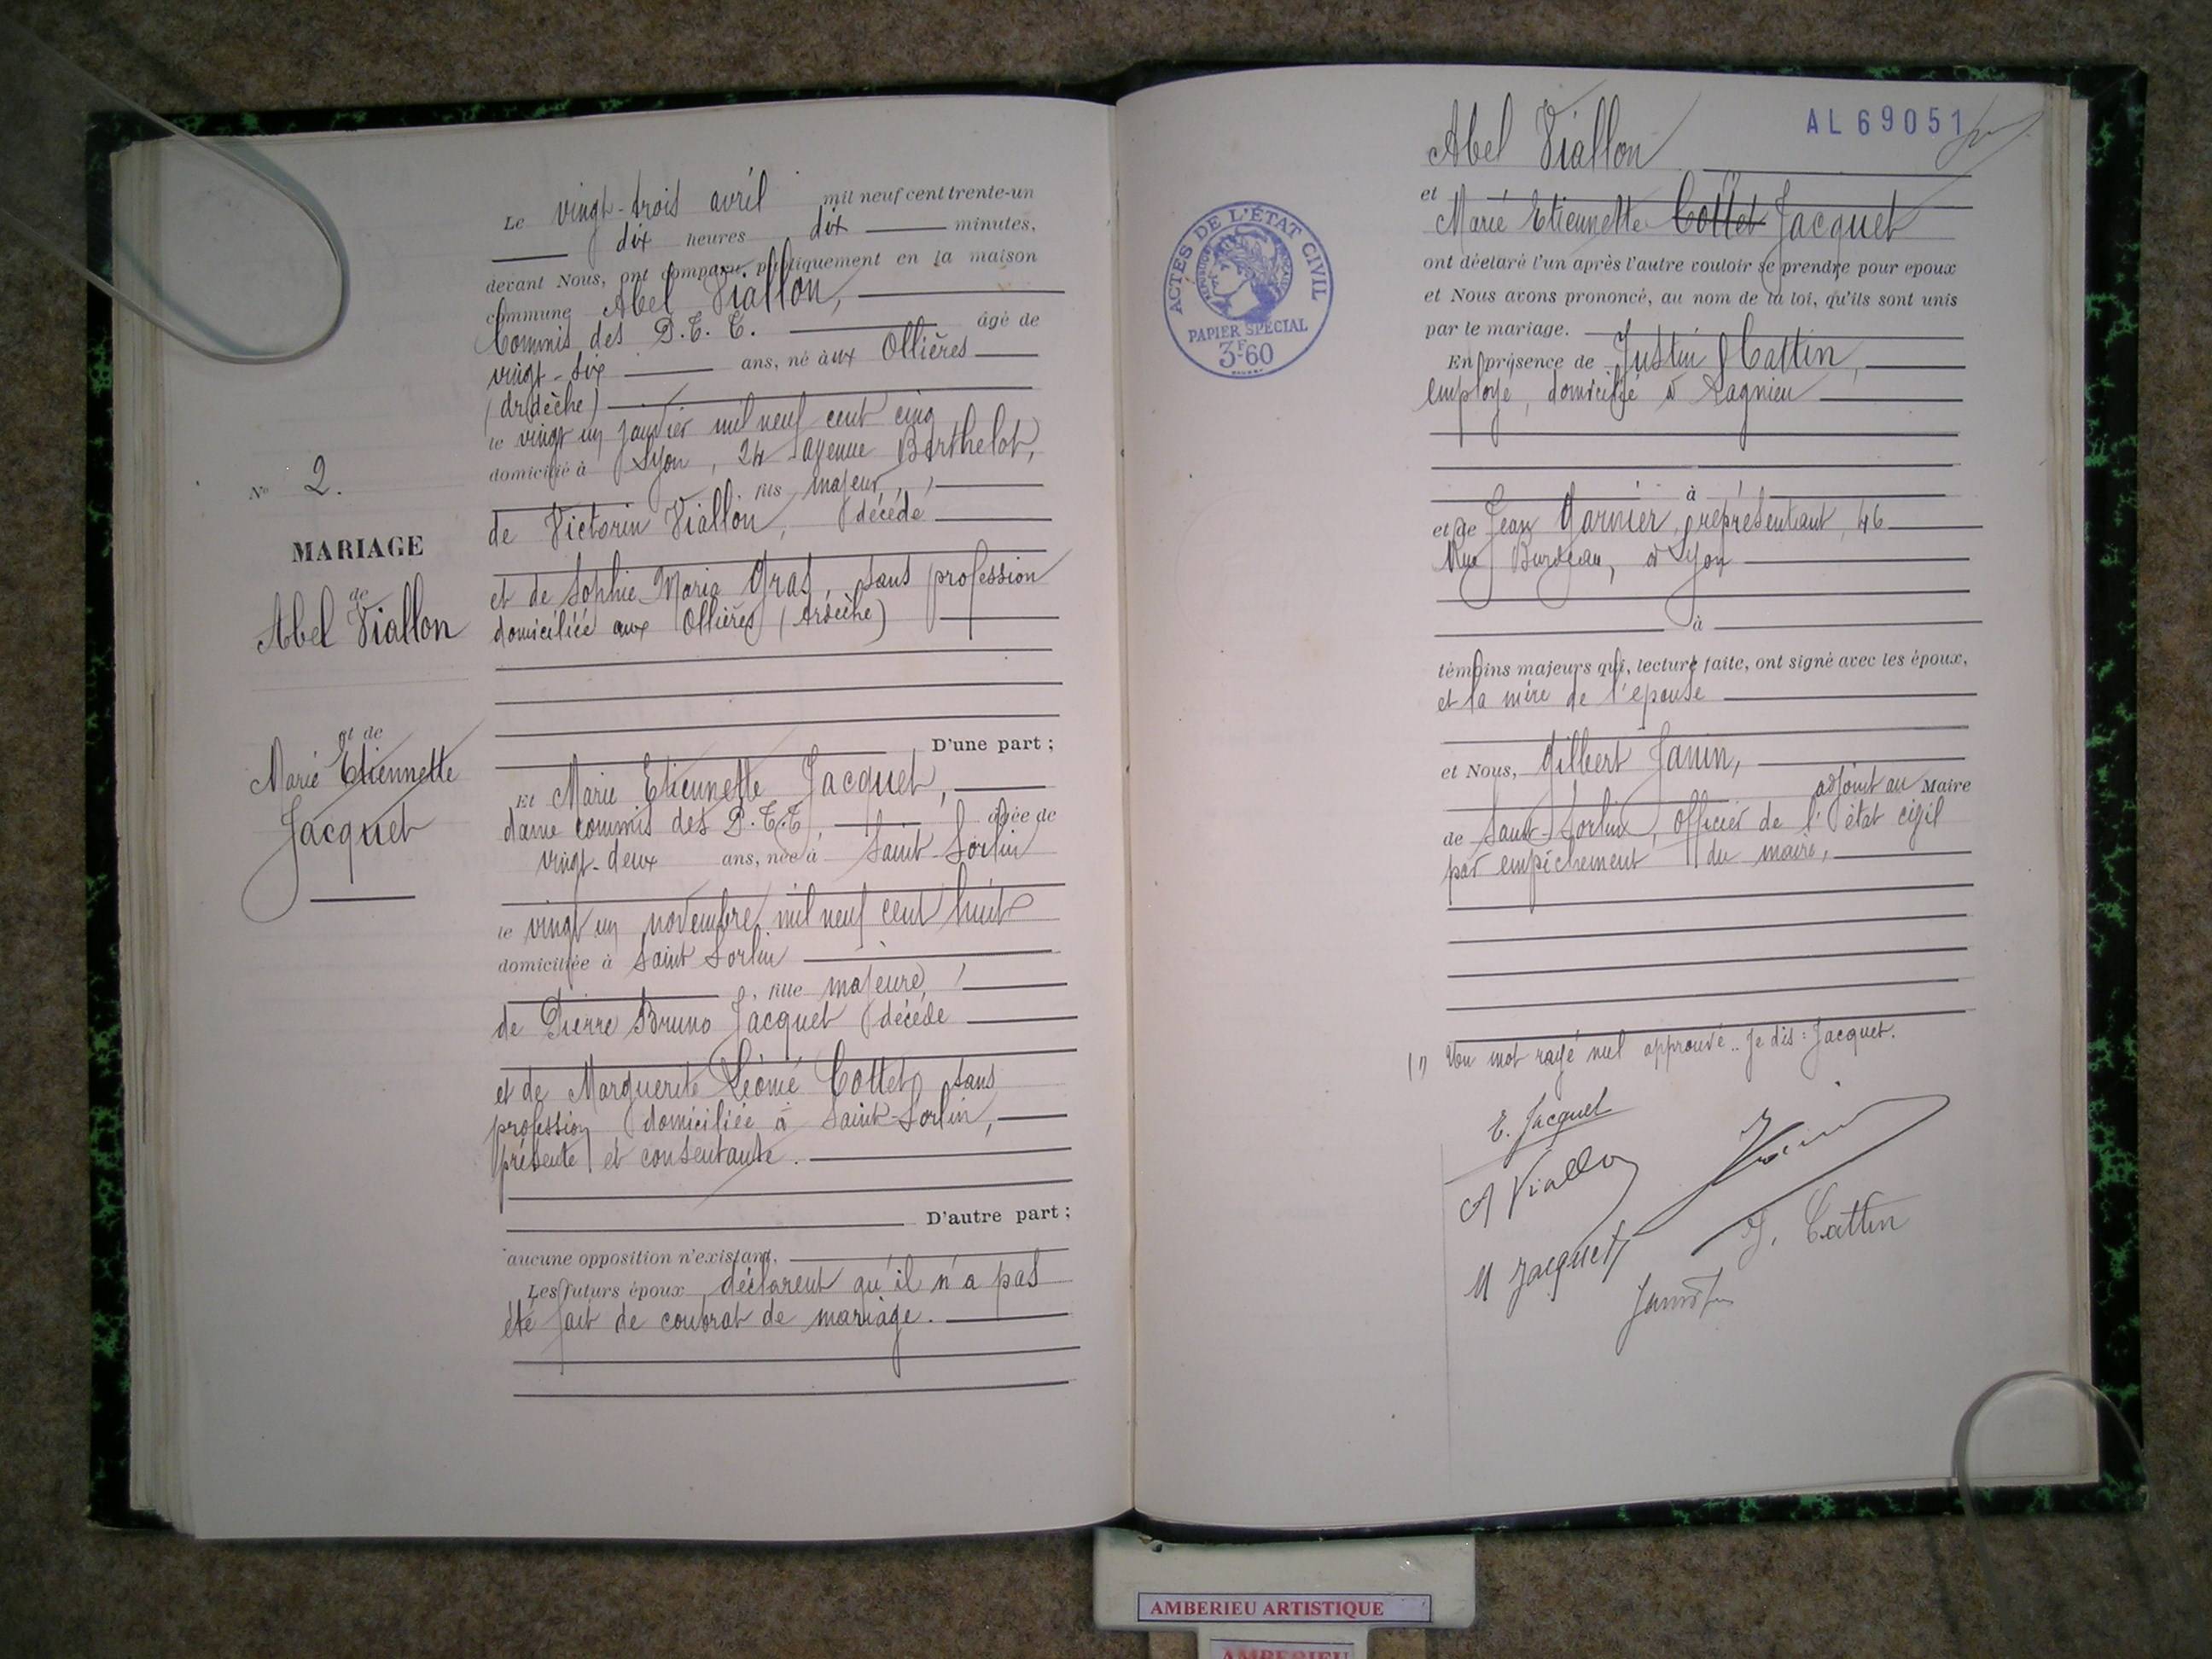 Le vingt-trois avril mil neuf cent trente-un
dix heures dix minutes,
devant Nous, ont comparu publiquement en la maison
commune Abel Viallon,
Commis des P.T.T. âgé de
vingt-six ans, né aux Ollières
(Ardèche)
le vingt un janvier mil neuf cent cinq
domicilié à Lyon, 24 avenue Berthelot,
, fils majeur,
de Victorin Viallon, décédé
et de Sophie Maria Gras, sans profession
domiciliée aux Ollières (Ardèche)
D'une part ;
Et Marie Etiennette Jacquet,
dame commis des P.T.T, âgée de
vingt-deux ans, née à Saint-Sorlin
le vingt un novembre mil neuf cent huit
domiciliée à Saint Sorlin
, fille majeure,
de Pierre Bruno Jacquet décédé
et de Marguerite Léonie Cottet, sans
profession domiciliée à Saint-Sorlin,
présente et consentante.
D'autre part ;
aucune opposition n'existant.
Les futurs époux déclarent qu'il n'a pas
été fait de contrat de mariage.
N° 2.
MARIAGE
de
Abel Viallon
et de
Marie Etiennette
Jacquet
AL 69051
Abel Viallon
et
Marie Etiennette Cottet Jacquet
ont déclaré l'un après l'autre vouloir se prendre pour epoux
et Nous avons prononcé, au nom de la loi, qu'ils sont unis
par le mariage.
En présence de Justin Cattin,
employé, domicilié à Lagnieu
à
et de Jean Garnier, représentant, 46
Rue Burdeau, à Lyon
à
témoins majeurs qui, lecture faite, ont signé avec les époux,
et la mère de l'epouse
et Nous, Gilbert Janin,
adjoint au Maire
de Saint-Sorlin, officier de l'état civil
par empêchement du maire,
(1) Un mot rayé nul approuvé.. Je dis : Jacquet.
E. Jacquet
A Viallon
M Jacquet
J. Cattin
ACTES DE L'ÉTAT CIVIL
RÉPUBLIQUE FRANÇAISE
PAPIER SPÉCIAL
3F60
AMBERIEU ARTISTIQUE
AMBERIEU